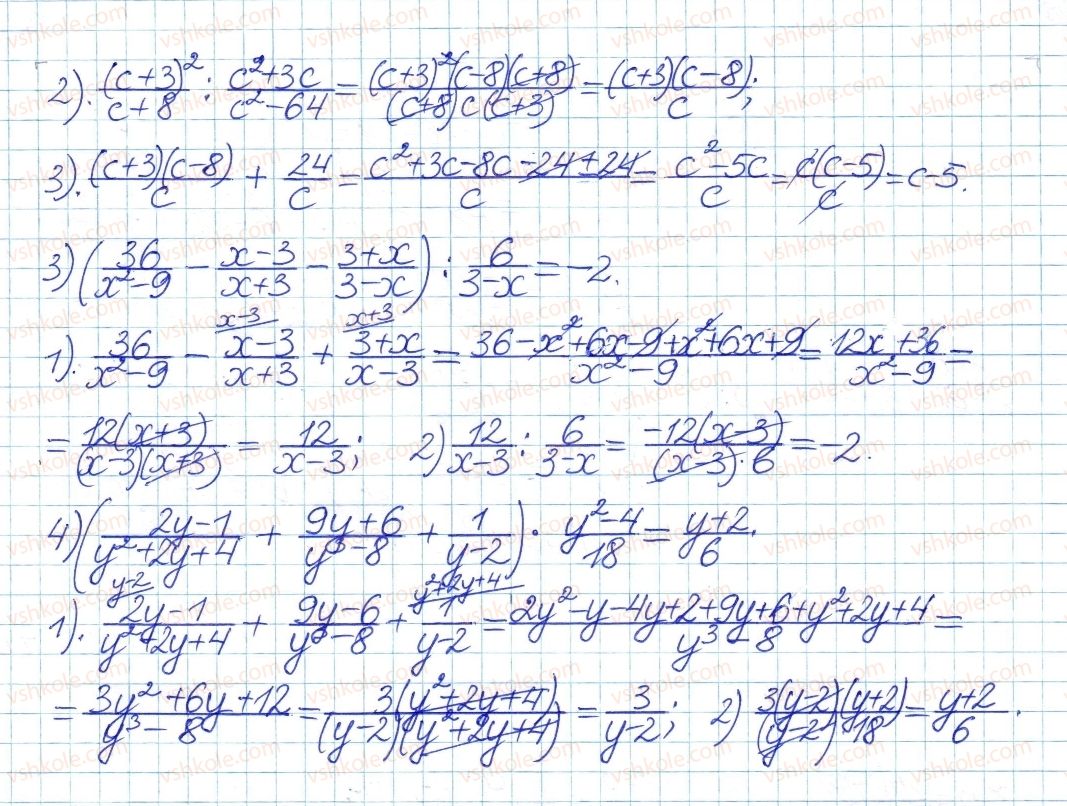 2). (c+3)²/(c+8) : (c²+3c)/(c²-64) = (c+3)²(c-8)(c+8)/((c+8)c(c+3)) = (c+3)(c-8)/c;
3). (c+3)(c-8)/c + 24/c = (c²+3c-8c-24+24)/c = (c²-5c)/c = c(c-5)/c = c-5.
3) (36/(x²-9) - (x-3)/(x+3) - (3+x)/(3-x)) : 6/(3-x) = -2.
x-3 x+3
1). 36/(x²-9) - (x-3)/(x+3) + (3+x)/(x-3) = (36-x²+6x-9+x²+6x+9)/(x²-9) = (12x+36)/(x²-9) =
= 12(x+3)/((x-3)(x+3)) = 12/(x-3); 2) 12/(x-3) : 6/(3-x) = -12(x-3)/((x-3)·6) = -2.
4) ((2y-1)/(y²+2y+4) + (9y+6)/(y³-8) + 1/(y-2)) · (y²-4)/18 = (y+2)/6.
y-2 y²+2y+4
1). (2y-1)/(y²+2y+4) + (9y-6)/(y³-8) + 1/(y-2) = (2y²-y-4y+2+9y+6+y²+2y+4)/(y³-8) =
= (3y²+6y+12)/(y³-8) = 3(y²+2y+4)/((y-2)(y²+2y+4)) = 3/(y-2); 2) 3(y-2)(y+2)/((y-2)18) = (y+2)/6.
vshkole.com